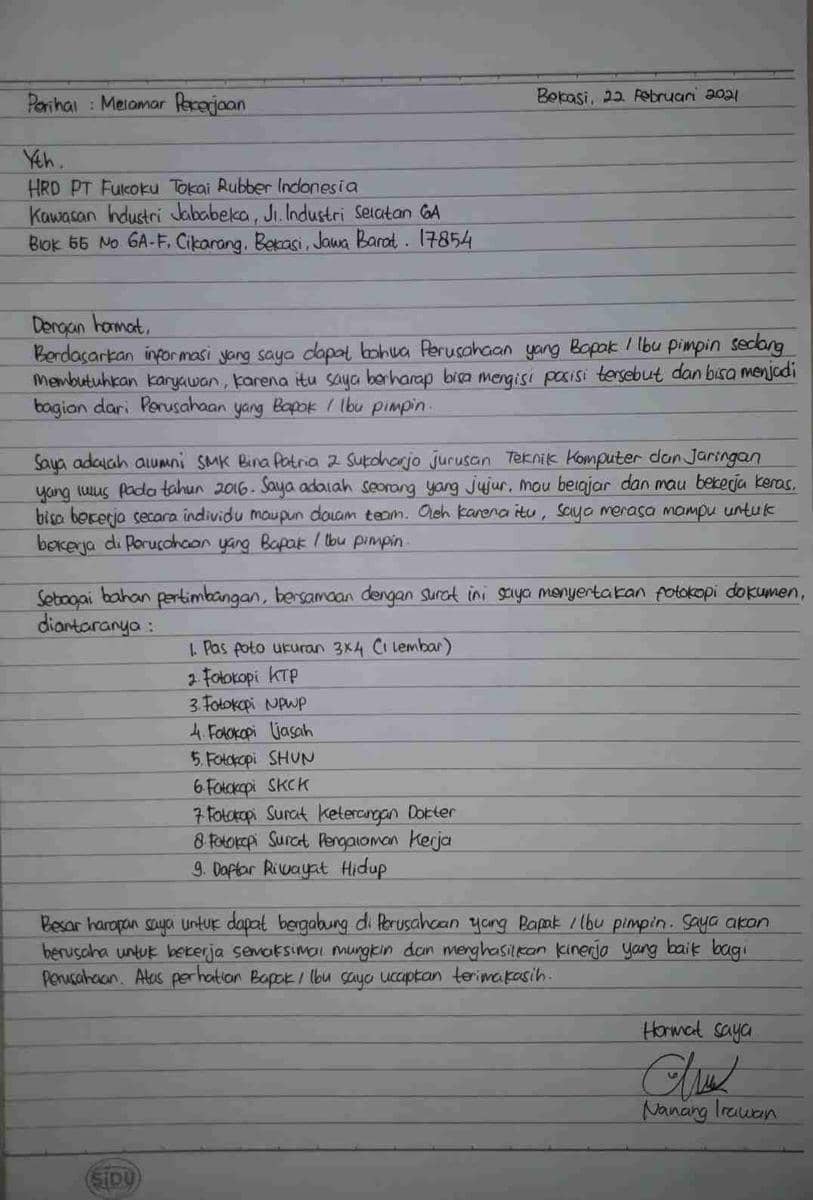 Perihal : Melamar Pekerjaan
Bekasi, 22 Februari 2021
Yth.
HRD PT Fukoku Tokai Rubber Indonesia
Kawasan Industri Jababeka, Jl. Industri Selatan 6A
Blok 55 No 6A-F, Cikarang, Bekasi, Jawa Barat. 17854
Dengan hormat,
Berdasarkan informasi yang saya dapat bahwa Perusahaan yang Bapak / Ibu pimpin sedang
membutuhkan karyawan, karena itu saya berharap bisa mengisi posisi tersebut dan bisa menjadi
bagian dari Perusahaan yang Bapak / Ibu pimpin.
Saya adalah alumni SMK Bina Patria 2 Sukoharjo jurusan Teknik Komputer dan Jaringan
yang lulus pada tahun 2016. Saya adalah seorang yang jujur, mau belajar dan mau bekerja keras,
bisa bekerja secara individu maupun dalam team. Oleh karena itu, saya merasa mampu untuk
bekerja di Perusahaan yang Bapak / Ibu pimpin.
Sebagai bahan pertimbangan, bersamaan dengan surat ini saya menyertakan fotokopi dokumen,
diantaranya :
1. Pas foto ukuran 3x4 (1 lembar)
2. Fotokopi KTP
3. Fotokopi NPWP
4. Fotokopi Ijasah
5. Fotokopi SHUN
6. Fotokopi SKCK
7. Fotokopi Surat Keterangan Dokter
8. Fotokopi Surat Pengalaman Kerja
9. Daftar Riwayat Hidup
Besar harapan saya untuk dapat bergabung di Perusahaan yang Bapak / Ibu pimpin. Saya akan
berusaha untuk bekerja semaksimal mungkin dan menghasilkan kinerja yang baik bagi
Perusahaan. Atas perhatian Bapak / Ibu saya ucapkan terimakasih.
Hormat saya
Nanang Irawan
SIDU